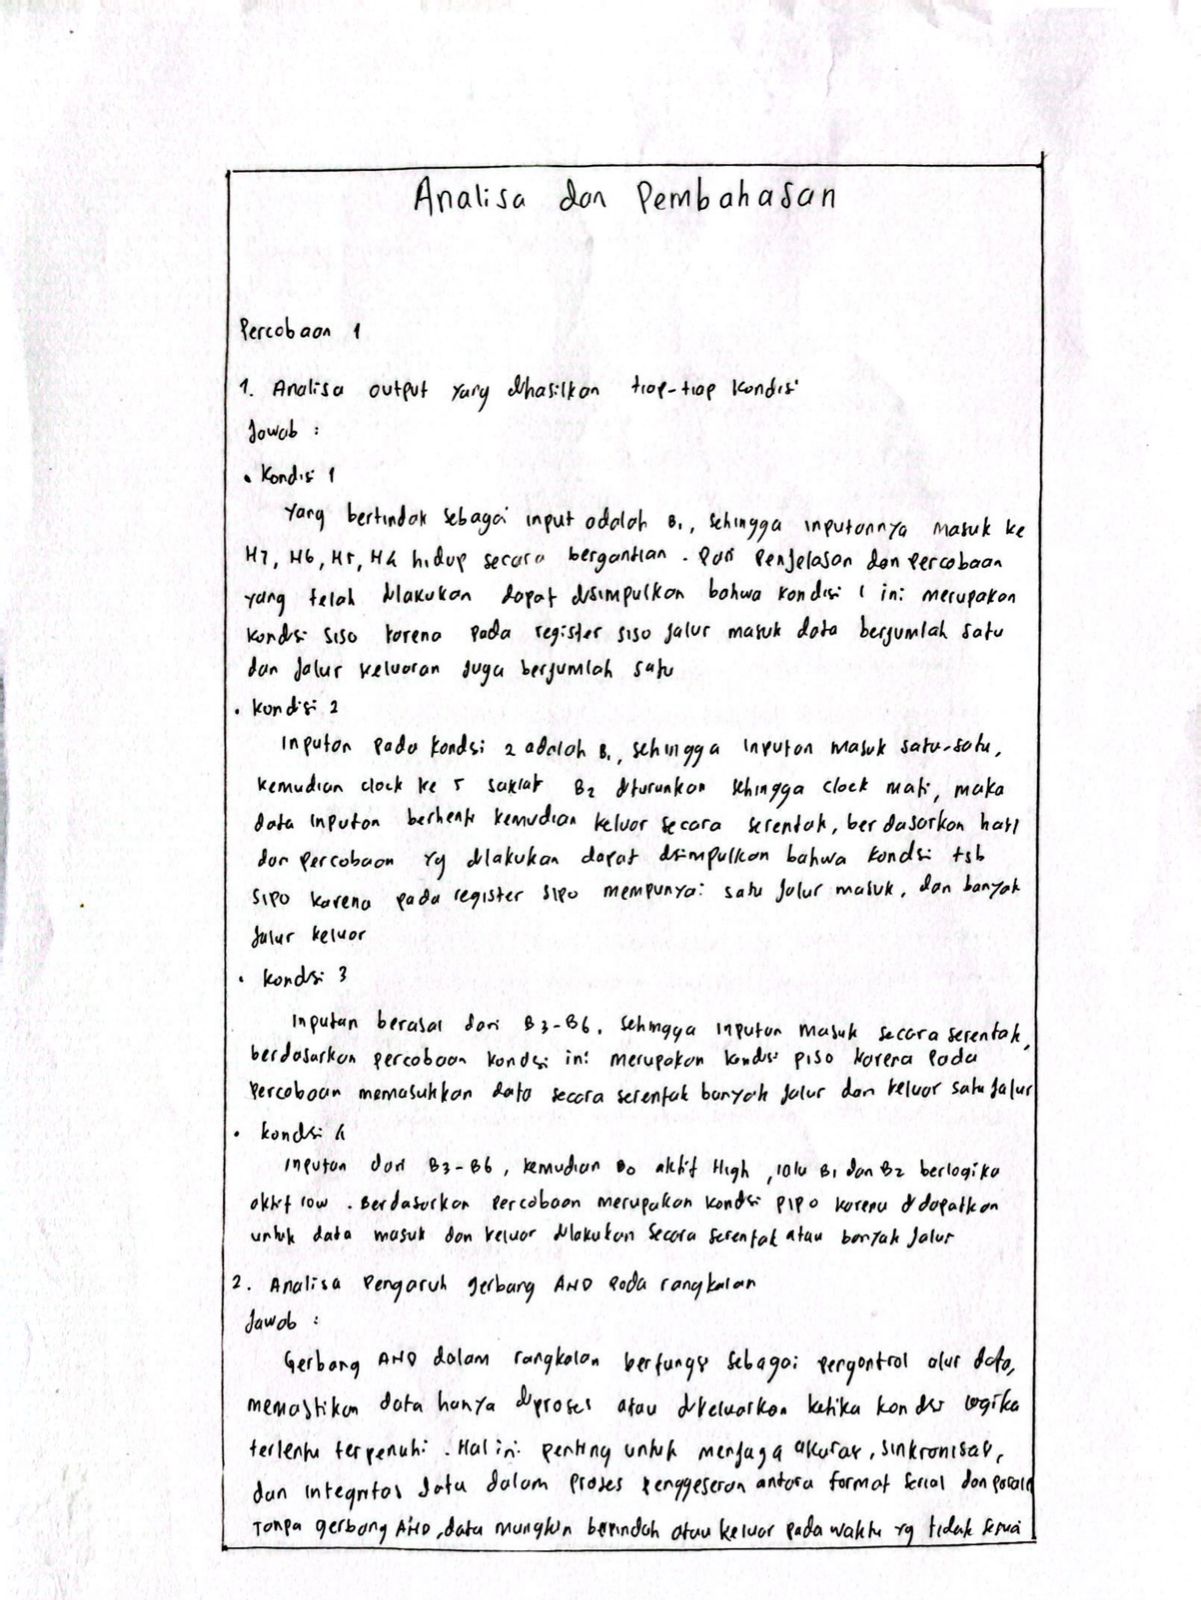 Analisa dan Pembahasan
Percobaan 1
1. Analisa output yang dihasilkan tiap-tiap kondisi
Jawab :
• Kondisi 1
Yang bertindak sebagai input adalah B1, sehingga inputannya masuk ke
H7, H6, H5, H4 hidup secara bergantian. Dari Penjelasan dan Percobaan
yang telah dilakukan dapat disimpulkan bahwa kondisi 1 ini merupakan
kondisi SISO karena pada register SISO jalur masuk data berjumlah satu
dan jalur keluaran juga berjumlah satu
• Kondisi 2
Inputan pada kondisi 2 adalah B1, sehingga inputan masuk satu-satu,
kemudian clock ke 5 saklar B2 diturunkan sehingga clock mati, maka
data inputan berhenti kemudian keluar secara serentak, berdasarkan hasil
dar percobaan yg dilakukan dapat disimpulkan bahwa kondisi tsb
SIPO karena pada register SIPO mempunyai satu jalur masuk, dan banyak
jalur keluar
• Kondisi 3
Inputan berasal dari B3-B6, sehingga inputan masuk secara serentak,
berdasarkan percobaan kondisi ini merupakan kondisi PISO karena pada
percobaan memasukkan data secara serentak banyak jalur dan keluar satu jalur
• Kondisi 4
Inputan dari B3-B6, kemudian B0 aktif High, lalu B1 dan B2 berlogika
aktif low. Berdasarkan percobaan merupakan kondisi PIPO karena didapatkan
untuk data masuk dan keluar dilakukan secara serentak atau banyak jalur
2. Analisa Pengaruh gerbang AND pada rangkaian
Jawab :
Gerbang AND dalam rangkaian berfungsi sebagai pengontrol alur data,
memastikan data hanya diproses atau dikeluarkan ketika kondisi logika
tertentu terpenuhi. Hal ini penting untuk menjaga akurasi, sinkronisasi,
dan integritas data dalam proses penggeseran antara format serial dan paralel
Tanpa gerbang AND, data mungkin berpindah atau keluar pada waktu yg tidak sesuai